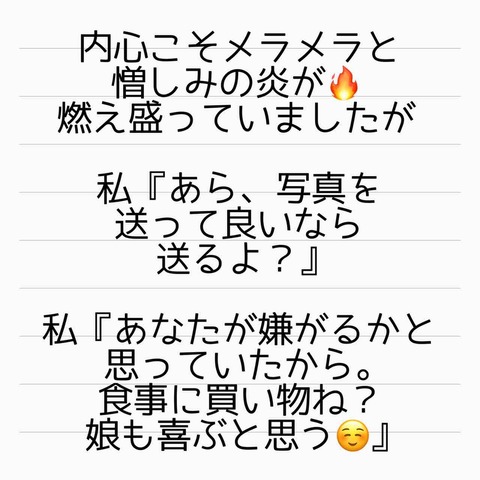 内心こそメラメラと
憎しみの炎が🔥
燃え盛っていましたが
私『あら、写真を
送って良いなら
送るよ？』
私『あなたが嫌がるかと
思っていたから。
食事に買い物ね？
娘も喜ぶと思う☺️』